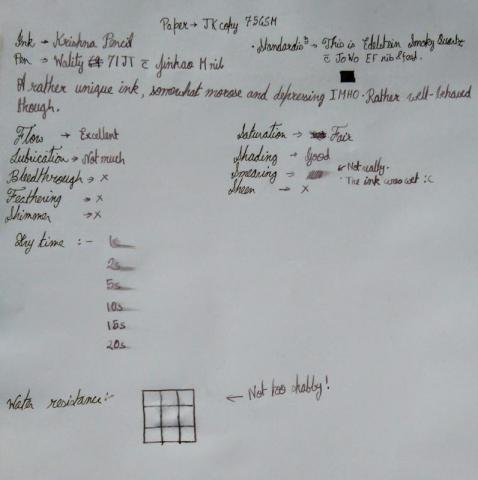 Paper → JK copy 75GSM
Ink → Krishna Pencil
Pen → Wality 71JT c̄ Jinhao M nib
• Standardisn → This is Edelstein Smoky Quartz
c̄ JoNo EF nib & feed.
A rather unique ink, somewhat morose and depressing IMHO. Rather well-behaved
though.
Flow → Excellent
Lubrication → Not much
Bleedthrough → x
Feathering → x
Shimmer → x
Saturation → Fair
Shading → Good
Smearing →
← Not really.
• The ink was wet :c
Sheen → x
Dry time :- 1s
2s
5s
10s
15s
20s
Water resistance:-
← Not too shabby!